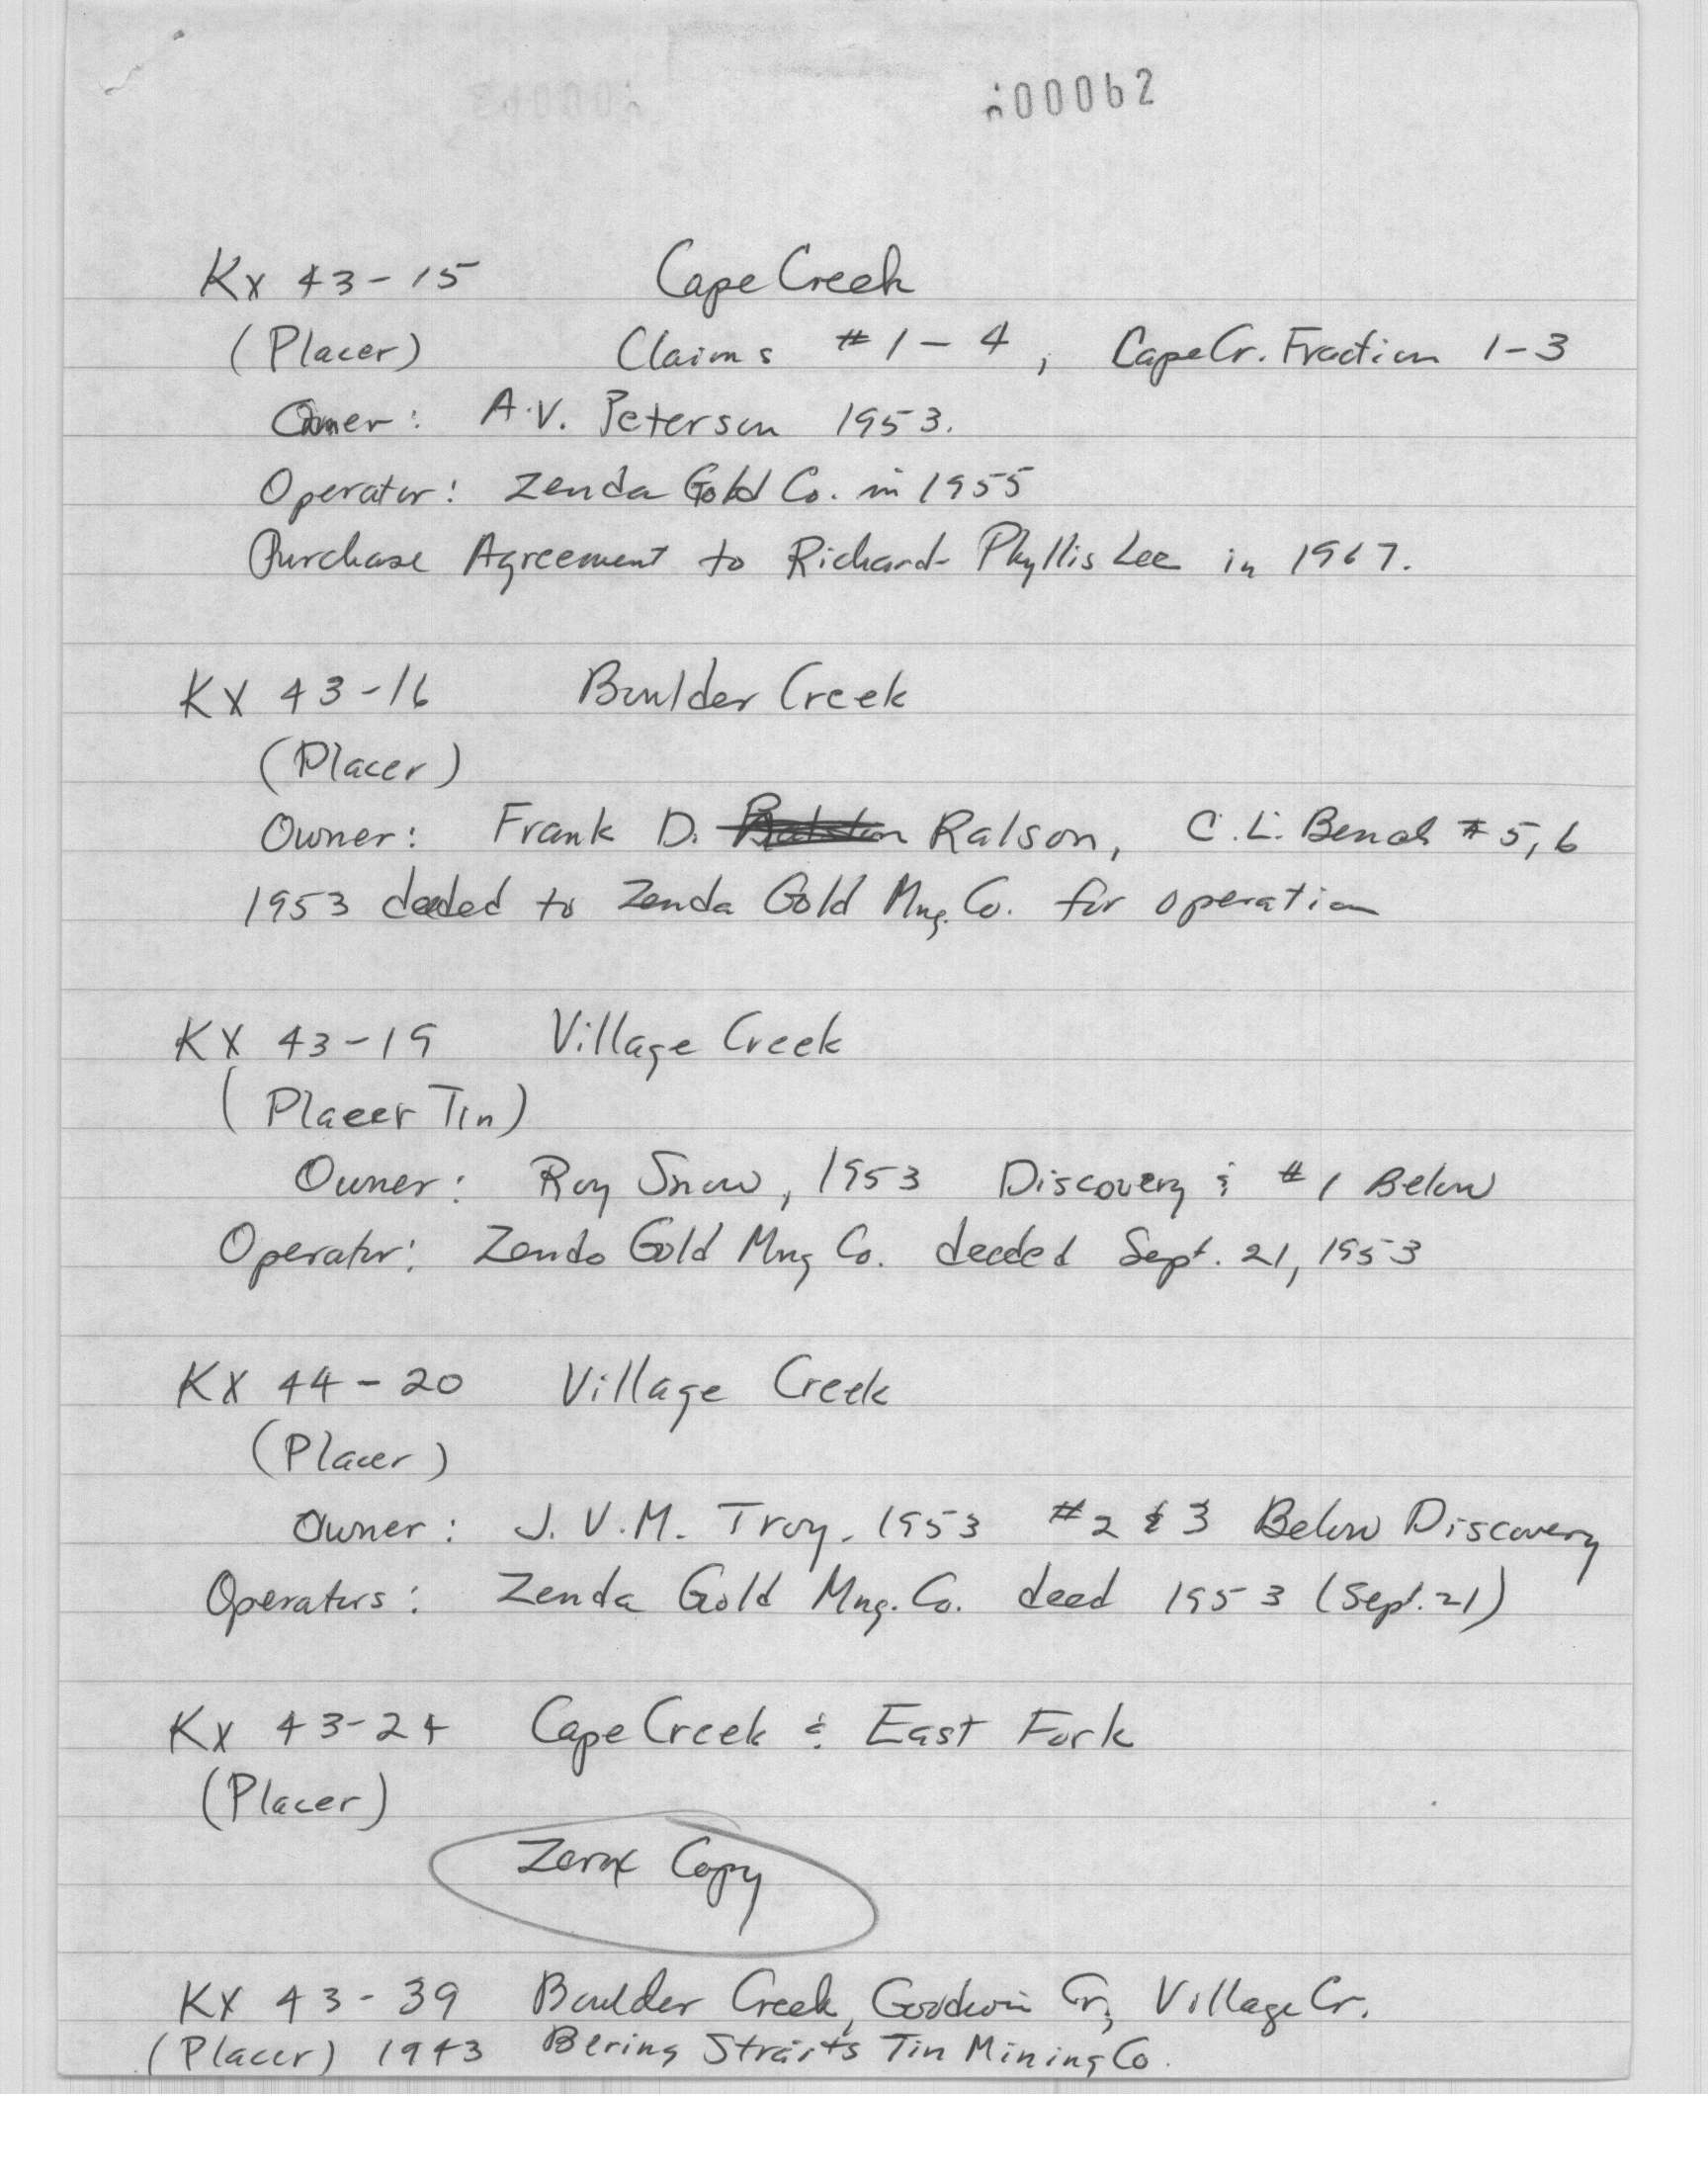 000062
Kx 43-15 Cape Creek
(Placer) Claims #1-4, Cape Cr. Fraction 1-3
Owner: A.V. Peterson 1953.
Operator: Zenda Gold Co. in 1955
Purchase Agreement to Richard Phyllis Lee in 1967.
KX 43-16 Boulder Creek
(Placer)
Owner: Frank D. Ralson, C.L. Bench #5,6
1953 deeded to Zenda Gold Mng. Co. for operation
KX 43-19 Village Creek
(Placer Tin)
Owner: Roy Snow, 1953 Discovery & #1 Below
Operator: Zenda Gold Mng Co. deeded Sept. 21, 1953
KX 44-20 Village Creek
(Placer)
Owner: J.V.M. Troy. 1953 #2 & 3 Below Discovery
Operators: Zenda Gold Mng. Co. deed 1953 (Sept. 21)
Kx 43-24 Cape Creek & East Fork
(Placer)
Zerox Copy
KX 43-39 Boulder Creek, Goodwin Cr, Village Cr.
(Placer) 1943 Bering Straits Tin Mining Co.